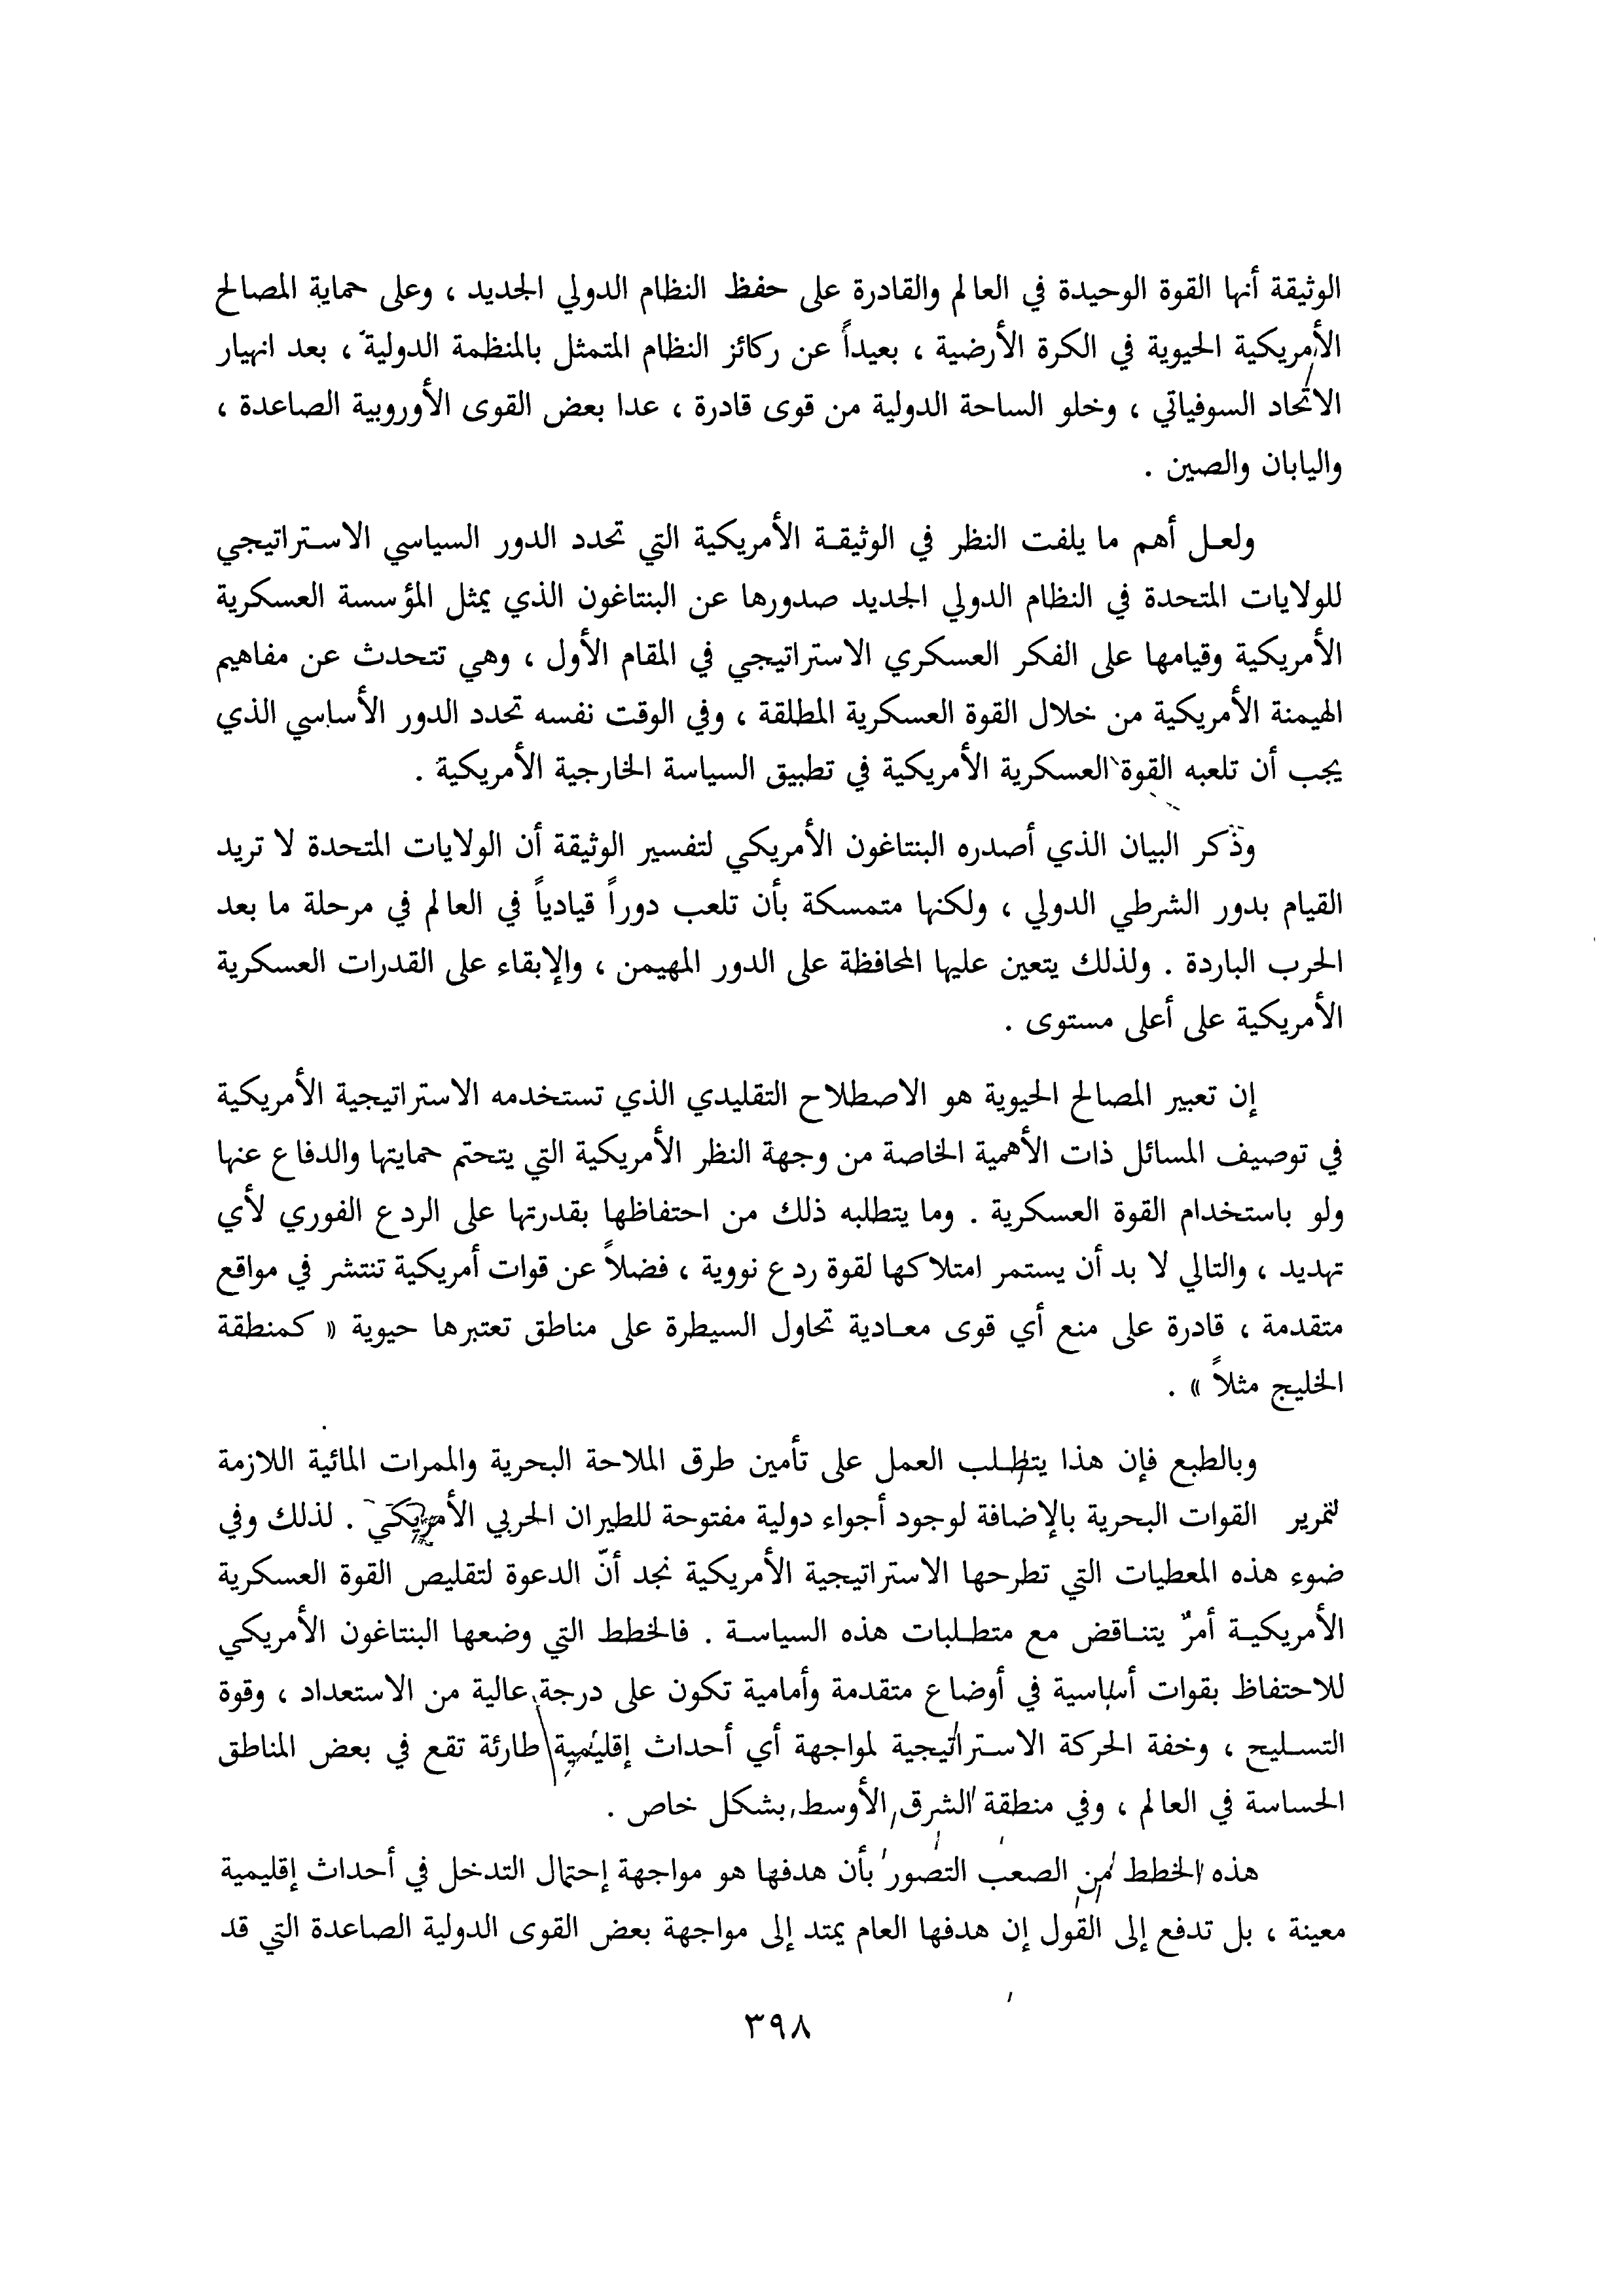 الوثيقة أنها القوة الوحيدة في العالم والقادرة على حفظ النظام الدولي الجديد ، وعلى حماية المصالح
الأمريكية الحيوية في الكرة الأرضية ، بعيداً عن ركائز النظام المتمثل بالمنظمة الدولية ، بعد انهيار
الاتحاد السوفياتي ، وخلو الساحة الدولية من قوى قادرة ، عدا بعض القوى الأوروبية الصاعدة ،
واليابان والصين .
ولعل أهم ما يلفت النظر في الوثيقة الأمريكية التي تحدد الدور السياسي الاستراتيجي
للولايات المتحدة في النظام الدولي الجديد صدورها عن البنتاغون الذي يمثل المؤسسة العسكرية
الأمريكية وقيامها على الفكر العسكري الاستراتيجي في المقام الأول ، وهي تتحدث عن مفاهيم
الهيمنة الأمريكية من خلال القوة العسكرية المطلقة ، وفي الوقت نفسه تحدد الدور الأساسي الذي
يجب أن تلعبه القوة العسكرية الأمريكية في تطبيق السياسة الخارجية الأمريكية .
وذكر البيان الذي أصدره البنتاغون الأمريكي لتفسير الوثيقة أن الولايات المتحدة لا تريد
القيام بدور الشرطي الدولي ، ولكنها متمسكة بأن تلعب دوراً قيادياً في العالم في مرحلة ما بعد
الحرب الباردة . ولذلك يتعين عليها المحافظة على الدور المهيمن ، والإبقاء على القدرات العسكرية
الأمريكية على أعلى مستوى .
إن تعبير المصالح الحيوية هو الاصطلاح التقليدي الذي تستخدمه الاستراتيجية الأمريكية
في توصيف المسائل ذات الأهمية الخاصة من وجهة النظر الأمريكية التي يتحتم حمايتها والدفاع عنها
ولو باستخدام القوة العسكرية . وما يتطلبه ذلك من احتفاظها بقدرتها على الردع الفوري لأي
تهديد ، والتالي لا بد أن يستمر امتلاكها لقوة ردع نووية ، فضلاً عن قوات أمريكية تنتشر في مواقع
متقدمة ، قادرة على منع أي قوى معادية تحاول السيطرة على مناطق تعتبرها حيوية « كمنطقة
الخليج مثلاً » .
وبالطبع فإن هذا يتطلب العمل على تأمين طرق الملاحة البحرية والممرات المائية اللازمة
لتمرير القوات البحرية بالإضافة لوجود أجواء دولية مفتوحة للطيران الحربي الأمريكي . لذلك وفي
ضوء هذه المعطيات التي تطرحها الاستراتيجية الأمريكية نجد أنّ الدعوة لتقليص القوة العسكرية
الأمريكية أمرٌ يتناقض مع متطلبات هذه السياسة . فالخطط التي وضعها البنتاغون الأمريكي
للاحتفاظ بقوات أساسية في أوضاع متقدمة وأمامية تكون على درجة عالية من الاستعداد ، وقوة
التسليح ، وخفة الحركة الاستراتيجية لمواجهة أي أحداث إقليمية طارئة تقع في بعض المناطق
الحساسة في العالم ، وفي منطقة الشرق الأوسط بشكل خاص .
هذه الخطط من الصعب التصور بأن هدفها هو مواجهة إحتمال التدخل في أحداث إقليمية
معينة ، بل تدفع إلى القول إن هدفها العام يمتد إلى مواجهة بعض القوى الدولية الصاعدة التي قد
٣٩٨